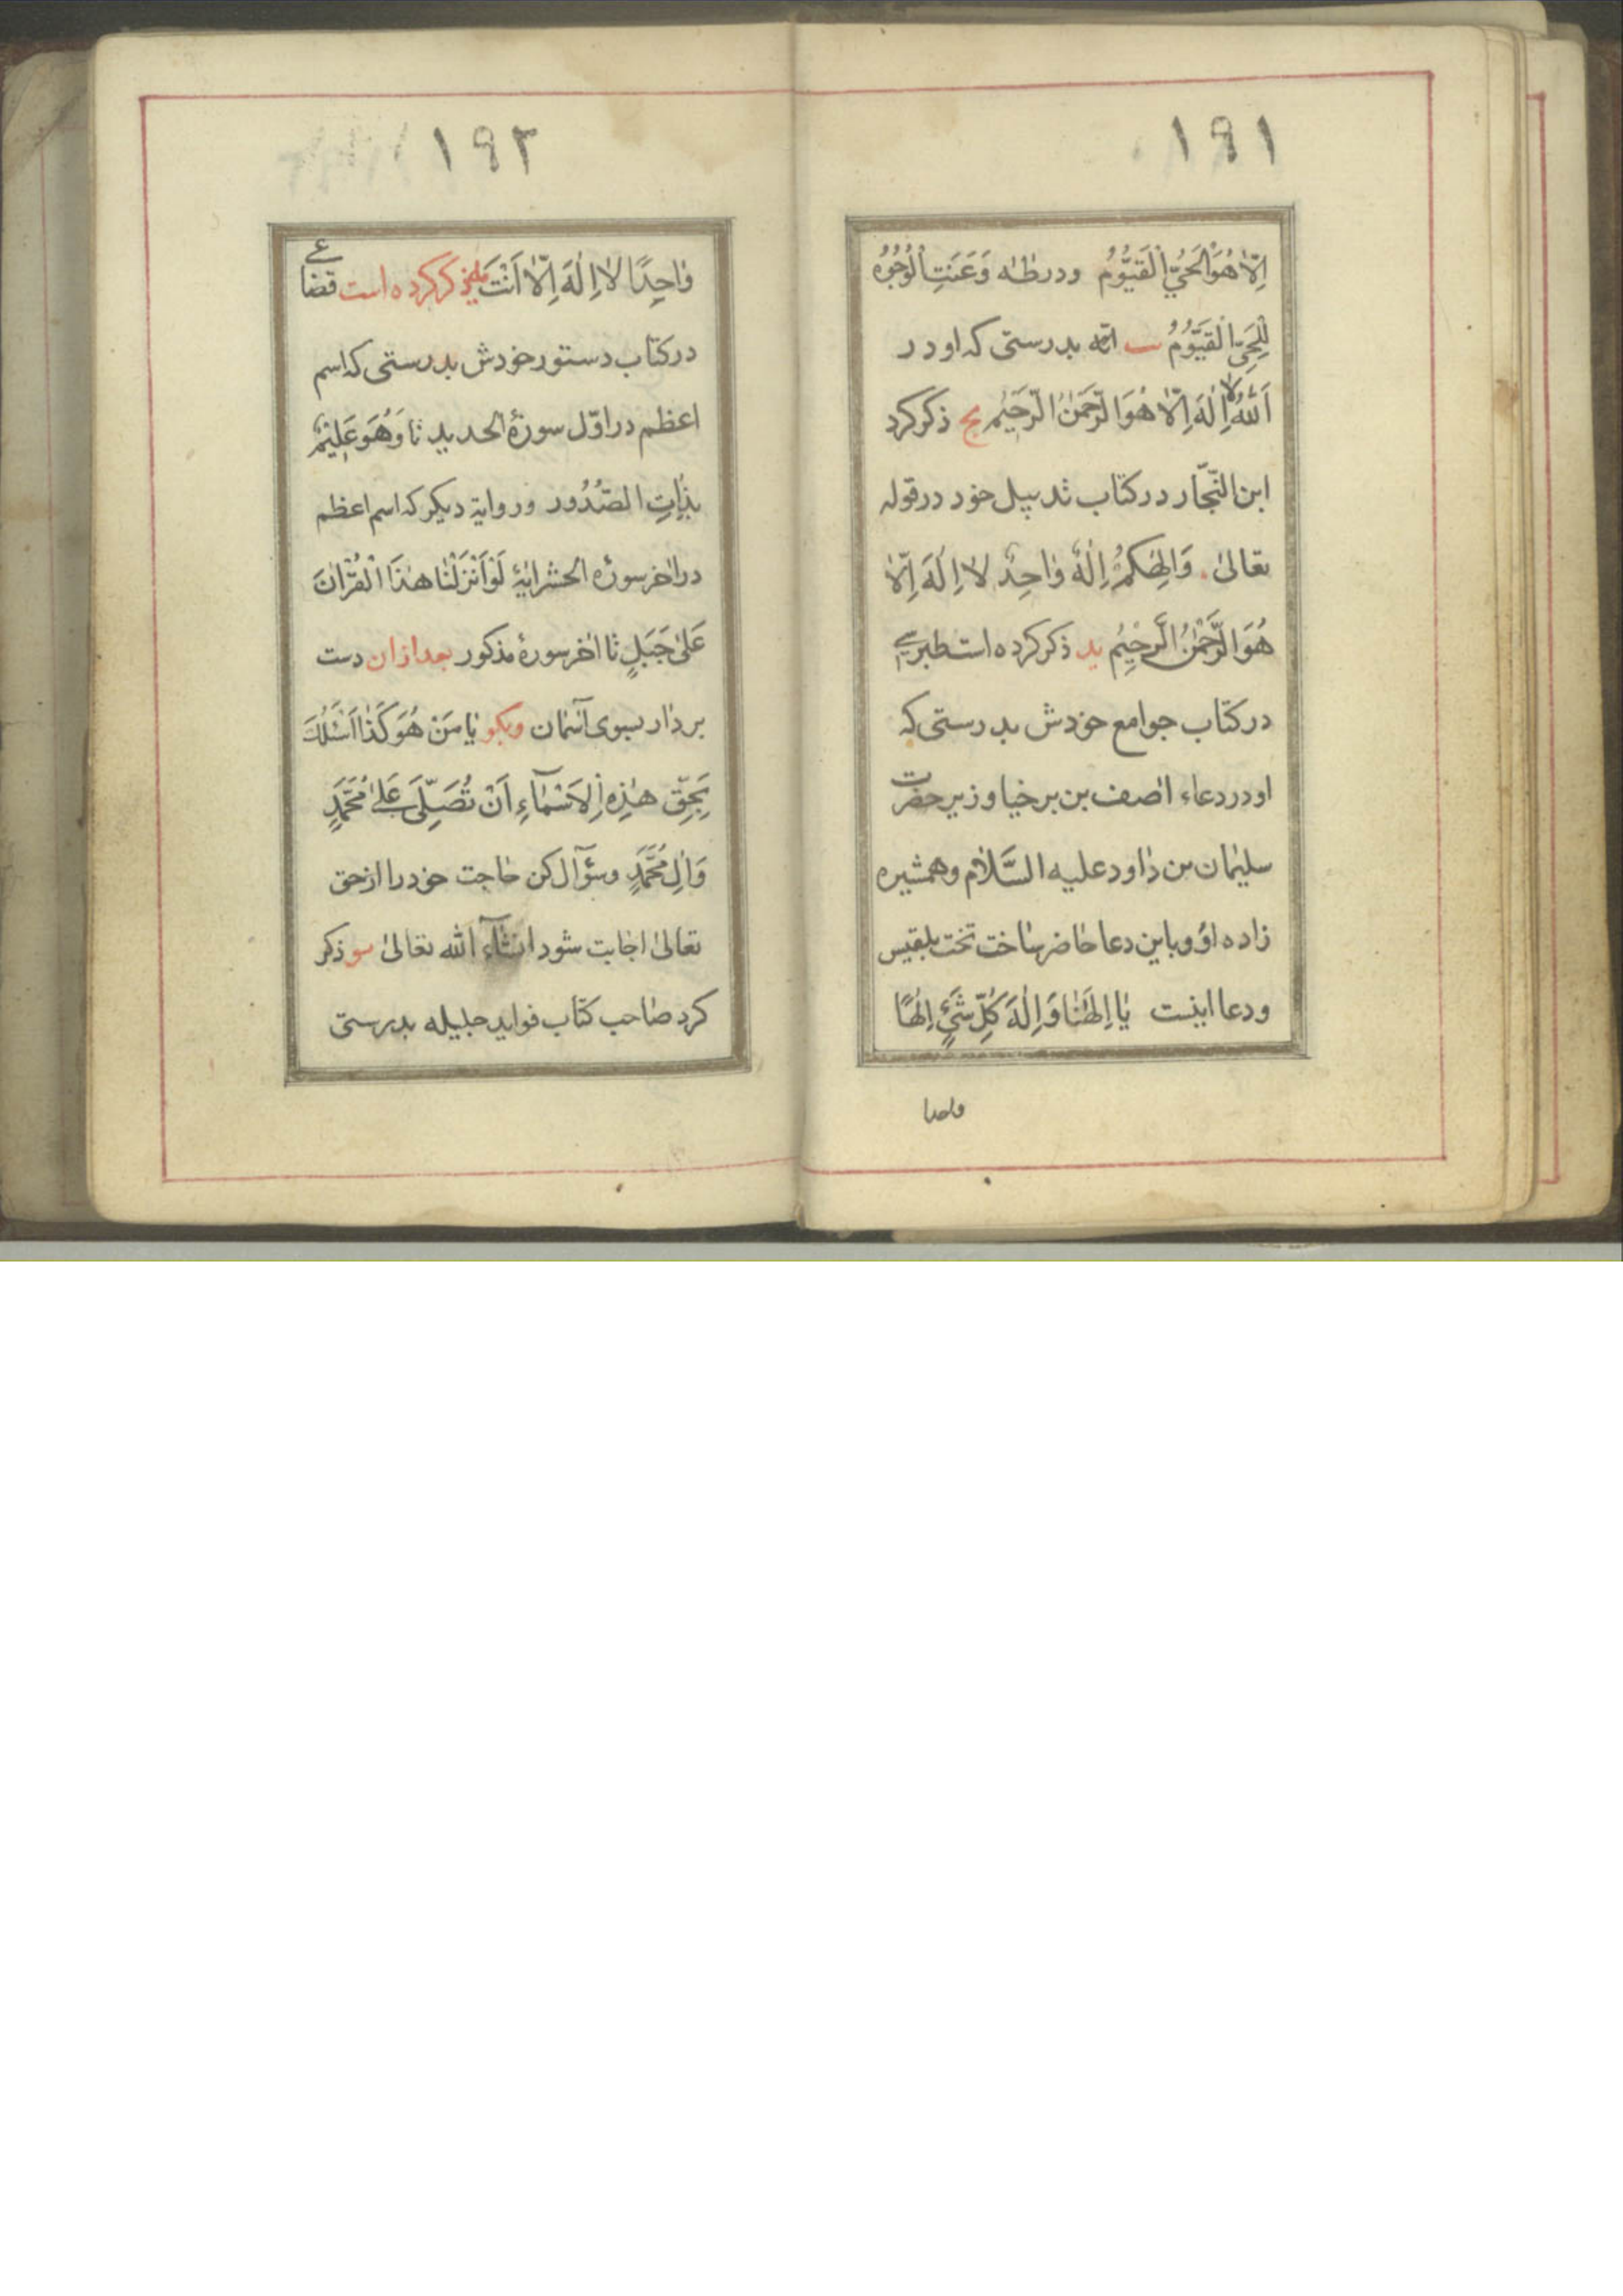 ۱۹۱
اِلّا هُوَ الْحَیُّ الْقَیُّومُ ودر طٰه وَعَنَتِ الْوُجُوهُ
لِلْحَیِّ الْقَیُّومُ یب انّه بدرستی که او در
اَللّٰهُ لا اِلٰهَ اِلّا هُوَ الرَّحْمٰنُ الرَّحیٖم یج ذکر کرد
ابن النّجّار در کتاب تدییل خود در قوله
تعالیٰ وَاِلٰهُکُمْ اِلٰهٌ وٰاحِدٌ لا اِلٰهَ اِلّا
هُوَ الرَّحْمٰنُ الرَّحیٖمُ ید ذکر کرده است طبرسی
در کتاب جوامع خودش بدرستی که
او در دعاء اٰصف بن برخیا وزیر حضرت
سلیمان بن داود علیه السَّلام وهمشیره
زاده او وباین دعا حاضر ساخت تخت بلقیس
ودعا اینست یٰا اِلٰهَنٰا وَاِلٰهَ کُلِّ شَیْءٍ اِلٰهًا
واحدا
۱۹۲
وٰاحِدًا لا اِلٰهَ اِلّا اَنْتَ یه ذکر کرده است قضاعی
در کتاب دستور خودش بدرستی که اسم
اعظم در اوّل سورۀ الحدید تا وَهُوَ عَلیٖمٌ
بِذٰاتِ الصُّدُور وروایة دیکر که اسم اعظم
در اٰخر سورۀ الحشر ایۀ لَوْ اَنْزَلْنٰا هٰذَا الْقُرْاٰنَ
عَلیٰ جَبَلٍ تا اٰخر سورۀ مذکور بعد ازان دست
بردار بسوی آسمان وبکو یٰا مَنْ هُوَ کَذٰا اَسْئَلُکَ
بِحَقِّ هٰذِهِ الْاَسْمٰآءِ اَنْ تُصَلِّیَ عَلیٰ مُحَمَّدٍ
وَاٰلِ مُحَمَّدٍ وسؤآل کن حاجت خود را از حق
تعالیٰ اجابت شود انشآء الله تعالیٰ یو ذکر
کرد صاحب کتاب فواید جلیله بدرستی